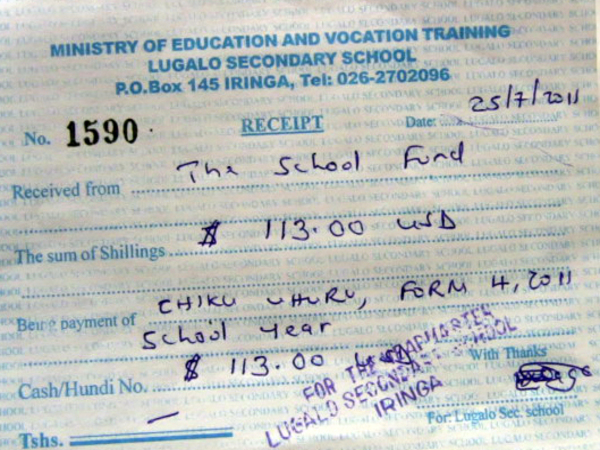 MINISTRY OF EDUCATION AND VOCATION TRAINING
LUGALO SECONDARY SCHOOL
P.O.Box 145 IRINGA, Tel: 026-2702096
No. 1590 RECEIPT Date: 25/7/2011
Received from The School Fund
The sum of Shillings $ 113.00 USD
Being payment of CHIKU UHURU, FORM 4, 2011
School Year
Cash/Hundi No. $ 113.00
With Thanks
FOR THE HEADMASTER
LUGALO SECONDARY SCHOOL
IRINGA
For: Lugalo Sec. school
Tshs.